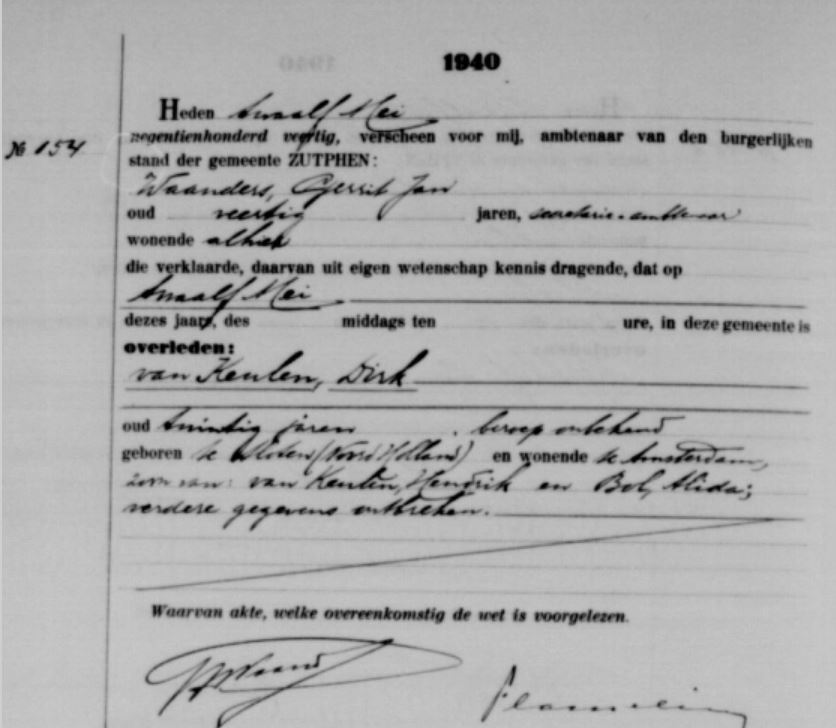 1940
Heden twaalf Mei
№ 154
negentienhonderd veertig, verscheen voor mij, ambtenaar van den burgerlijken
stand der gemeente ZUTPHEN:
Waanders, Gerrit Jan
oud veertig jaren, secretarie-ambtenaar
wonende alhier
die verklaarde, daarvan uit eigen wetenschap kennis dragende, dat op
twaalf Mei
dezes jaars, des middags ten ure, in deze gemeente is
overleden:
van Keulen, Dirk
oud twintig jaren, beroep onbekend
geboren te Sloten (Noord Holland) en wonende te Amsterdam,
zoon van: van Keulen, Hendrik en Bol, Alida;
verdere gegevens ontbreken.
Waarvan akte, welke overeenkomstig de wet is voorgelezen.